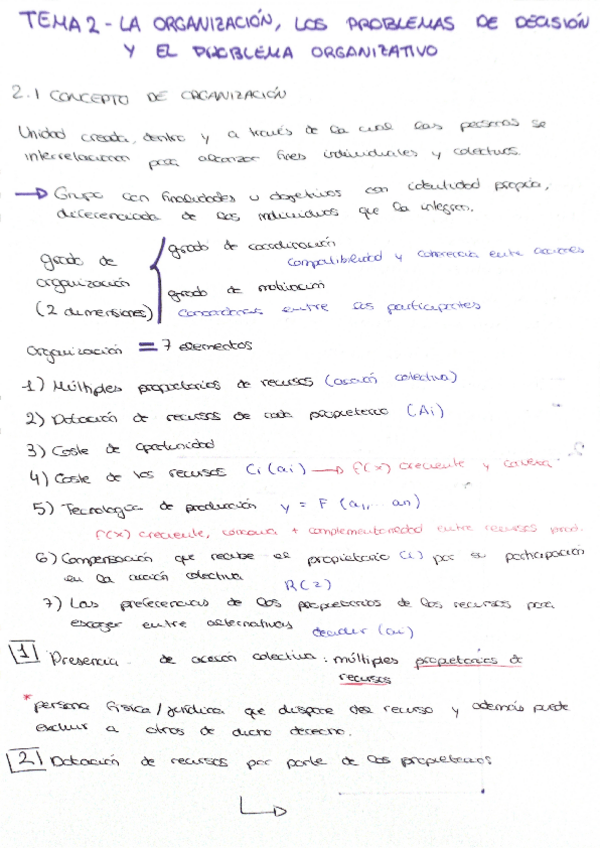 TEMA 2 - LA ORGANIZACIÓN, LOS PROBLEMAS DE DECISIÓN
Y EL PROBLEMA ORGANIZATIVO
2.1 CONCEPTO DE ORGANIZACIÓN
Unidad creada, dentro y a través de la cual las personas se
interrelacionan para alcanzar fines individuales y colectivos.
→ Grupo con finalidades u objetivos con identidad propia,
diferenciada de los individuos que la integran.
grado de organización (2 dimensiones)
grado de coordinación
compatibilidad y coherencia entre acciones
grado de motivación
entre los participantes
Organización = 7 elementos
1) Múltiples propietarios de recursos (acción colectiva)
2) Dotación de recursos de cada propietario (Ai)
3) Coste de oportunidad
4) Coste de los recursos Ci (ai) → f(x) creciente y convexa
5) Tecnología de producción y = F (a1, ... an)
f(x) creciente, cóncava + complementariedad entre recursos prod.
6) Compensación que recibe el propietario (i) por su participación
en la acción colectiva R(z)
7) Las preferencias de los propietarios de los recursos para
escoger entre alternativas decidir (ai)
1 Presencia de acción colectiva: múltiples propietarios de
recursos
* persona física/jurídica que dispone del recurso y además puede
excluir a otros de dicho derecho.
2 Dotación de recursos por parte de los propietarios
↳